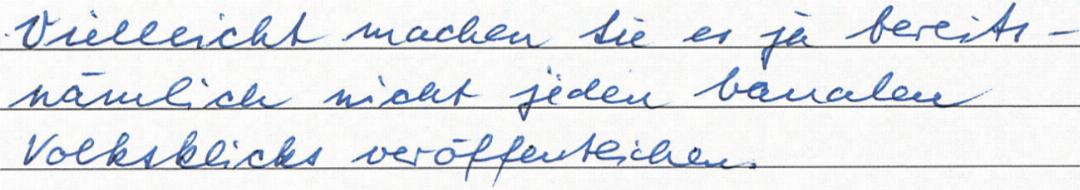 Vielleicht machen Sie es ja bereits -
nämlich nicht jeden banalen
Volksklicks veröffentlichen.